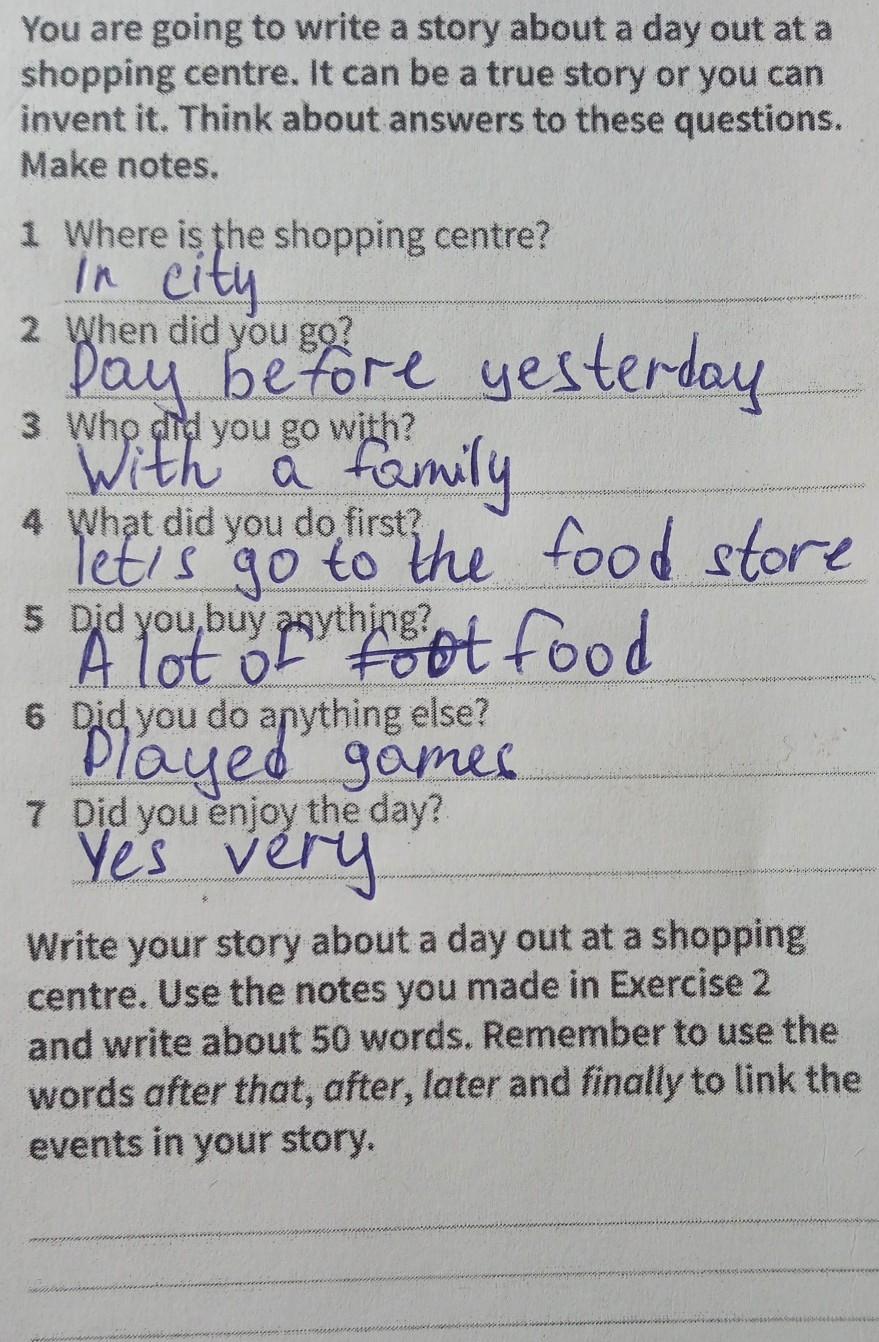 You are going to write a story about a day out at a
shopping centre. It can be a true story or you can
invent it. Think about answers to these questions.
Make notes.
1 Where is the shopping centre?
In city
2 When did you go?
Day before yesterday
3 Who did you go with?
With a family
4 What did you do first?
let's go to the food store
5 Did you buy anything?
A lot of foot food
6 Did you do anything else?
Played games
7 Did you enjoy the day?
Yes very
Write your story about a day out at a shopping
centre. Use the notes you made in Exercise 2
and write about 50 words. Remember to use the
words after that, after, later and finally to link the
events in your story.